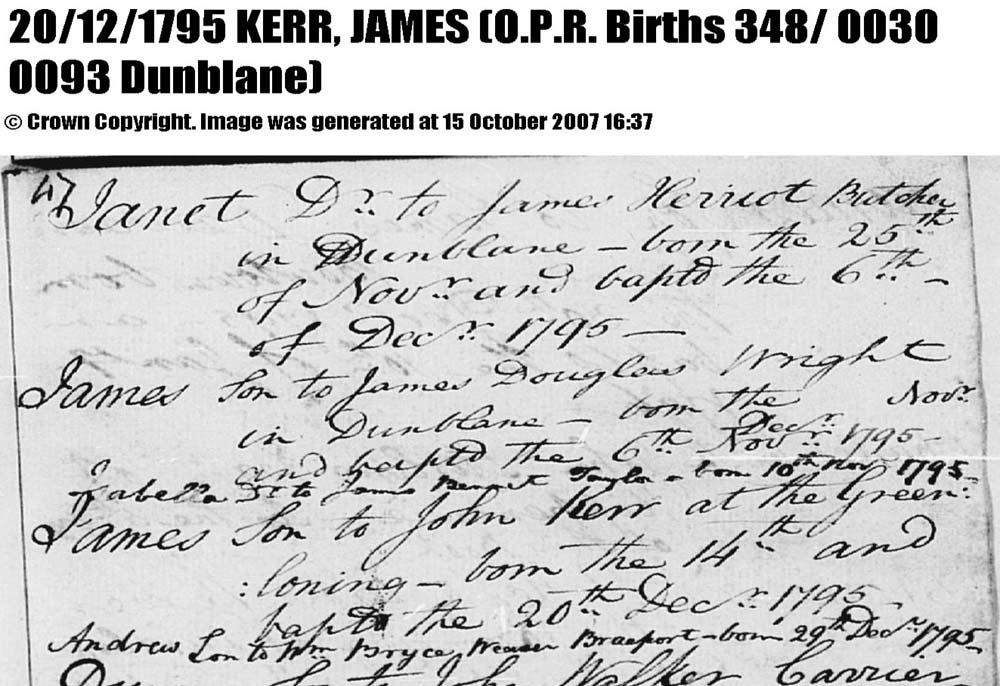 20/12/1795 KERR, JAMES (O.P.R. Births 348/ 0030
0093 Dunblane)
© Crown Copyright. Image was generated at 15 October 2007 16:37
47
Janet Dr. to James Herriot Butcher
in Dunblane – born the 25th
of Novr. and baptd the 6th –
of Decr. 1795 —
James Son to James Douglas Wright
in Dunblane – born the Novr.
and baptd the 6th Decr. Novr. 1795 –
Isabella Dr. to James Taylor – born 10th Novr 1795 –
James Son to John Kerr at the Green:
:loning – born the 14th and
bapt the 20th Decr. 1795
Andrew Son to Wm Bryce, Weaver Braeport – born 29th Decr. 1795
Son to John Walker Carrier